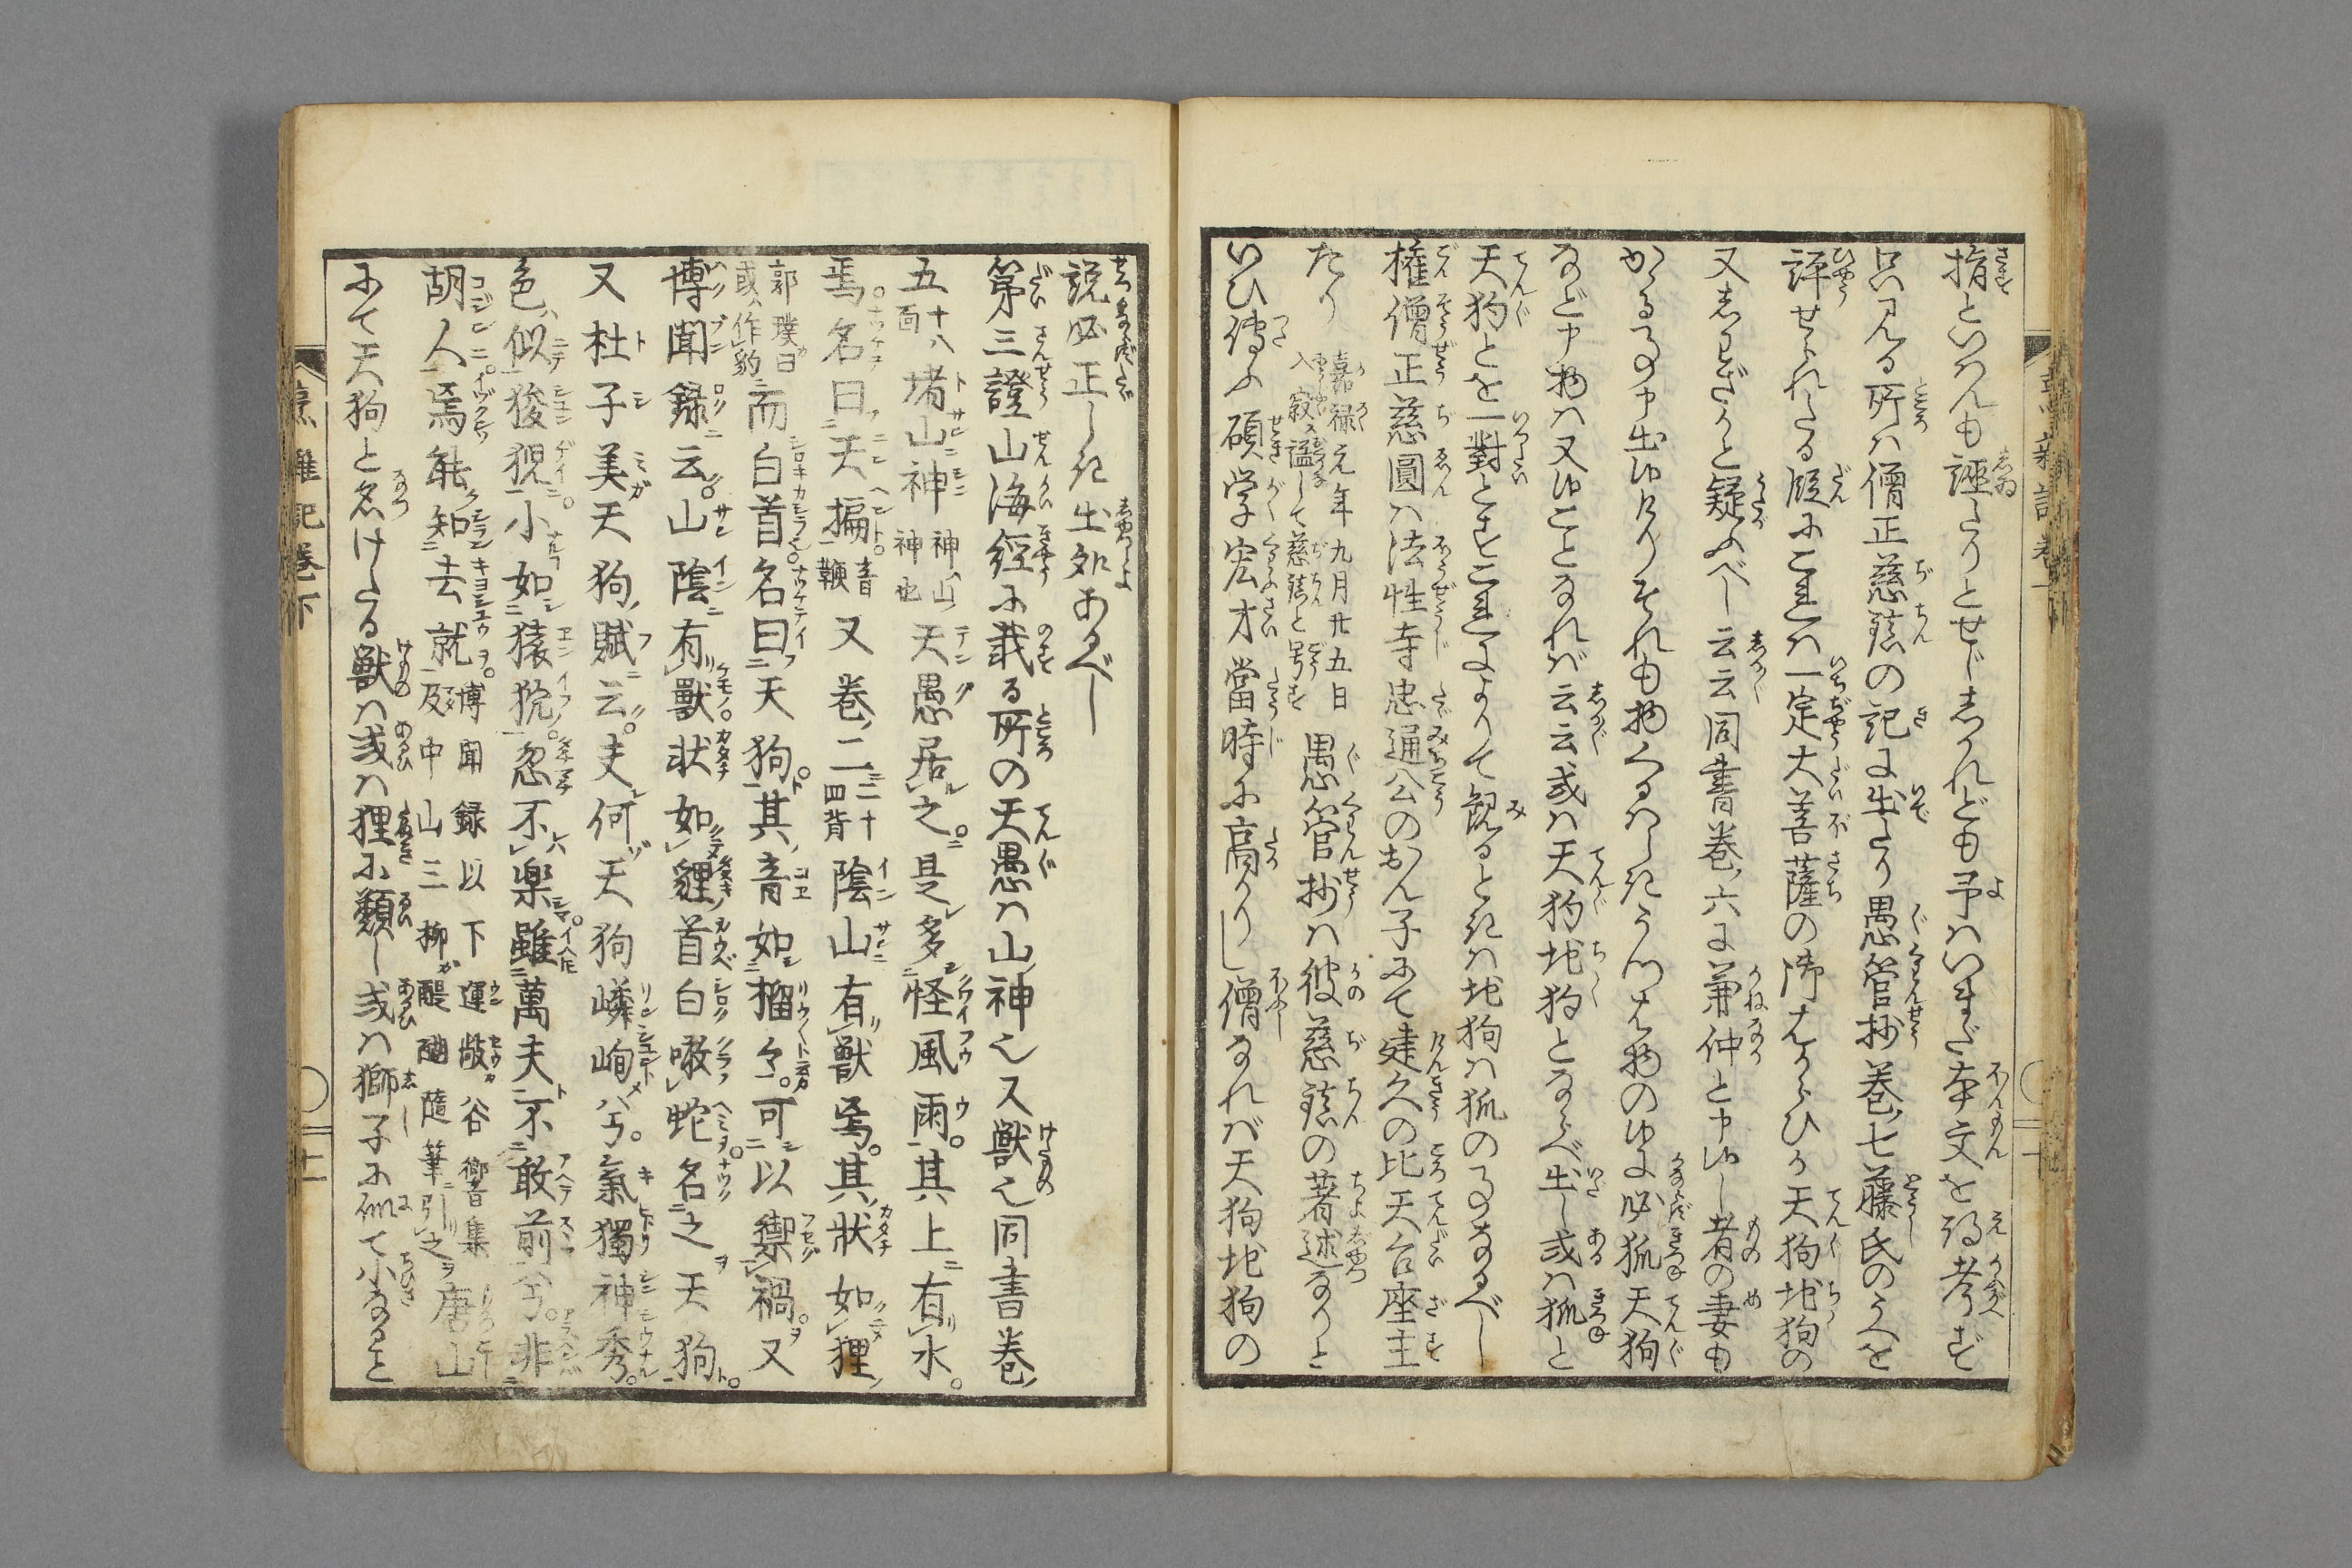 指といはんも誣たりとせじしかれども予はいまだ本文を得考ず
只みる所は僧正慈鎮の記に出たり愚管抄巻ノ七藤氏のうへを
評せられたる段にこれは一定大菩薩の御はからひか天狗地狗の
又しわざかと疑ふべし云云同書巻ノ六に兼仲と申し者の妻も
かゝる事申出けりそれも物くるはしき
など申物は又ことなれば云云或は天狗地狗とならべ出し或は狐と
天狗とを一對とすこれによりて観るときは地狗は狐の事なるべし
権僧正慈圓は法性寺忠通公のおん子にて建久の比天台座主
たり 嘉禄元年九月廿五日入寂謚して慈鎮と号す 愚管抄は彼慈鎮の著述なりと
いひ傳ふ碩学宏才當時に高かりし僧なれば天狗地狗の
説必正しき出処あるべし
第三證山海經に載る所の天愚は山神也又獣也同書巻ノ
五 十八面 堵山神 神山神也 天愚居之是多怪風雨其上有水
焉名曰天揙 音鞭 又巻ノ二 二十四背 陰山有獣焉其狀如狸
郭璞曰或作豹 而白首名曰天狗其音如榴々可以禦禍又
博聞録云山陰有獸狀如貍首白噉蛇名之天狗
又杜子美天狗賦云夫何天狗嶙峋兮氣獨神秀
色似狻猊小如猿狖忽不樂雖萬夫不敢前兮非
胡人焉能知去就 博聞録以下運敞谷響集及中山三柳醍醐隨筆引之 唐山
にて天狗と名けたる獣は或は狸に類し或は獅子に似て小なると